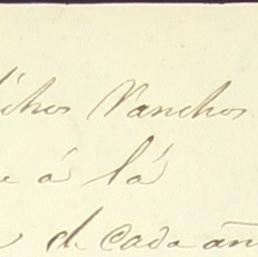 dichos Ranchos
e á lá
de cada añ